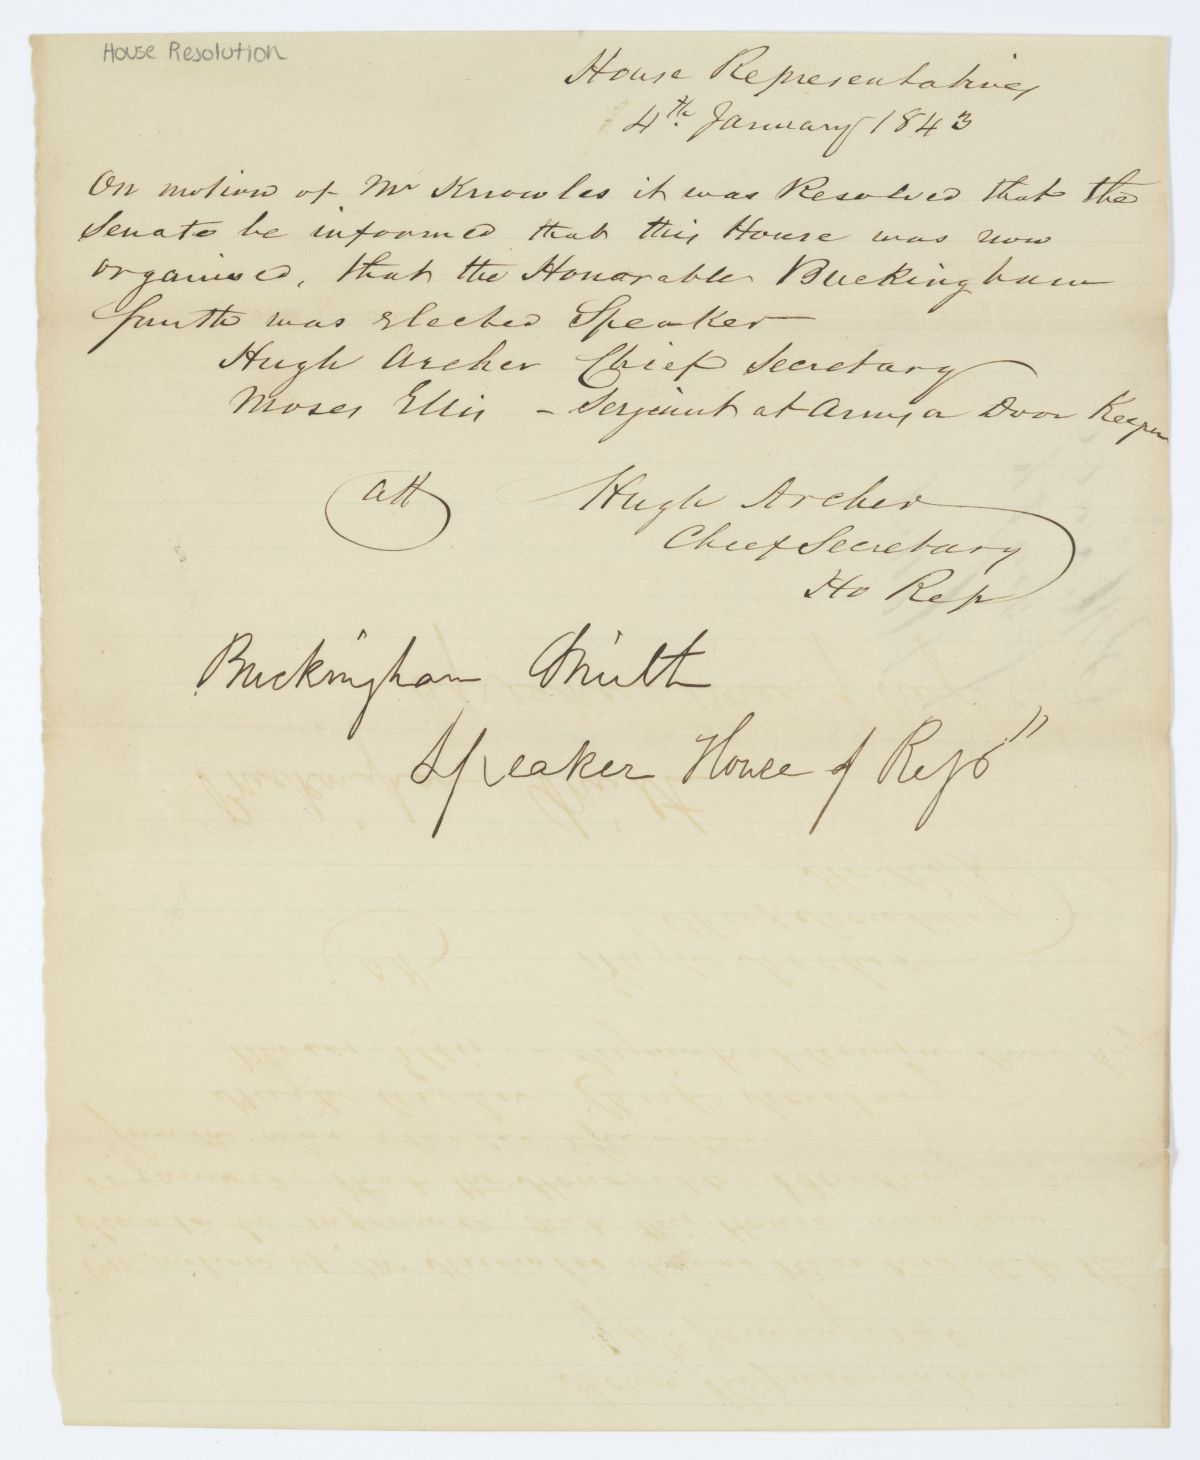 House Resolution
House Representatives
4th January 1843
On motion of Mr Knowles it was Resolved that the
Senate be informed that this House was now
organised, that the Honorable Buckingham
Smith was elected Speaker
Hugh Archer Chief Secretary
Moses Ellis - Serjeant at Arms a Door Keeper
att Hugh Archer
Chief Secretary
Ho Rep
Buckingham Smith
Speaker House of Reps